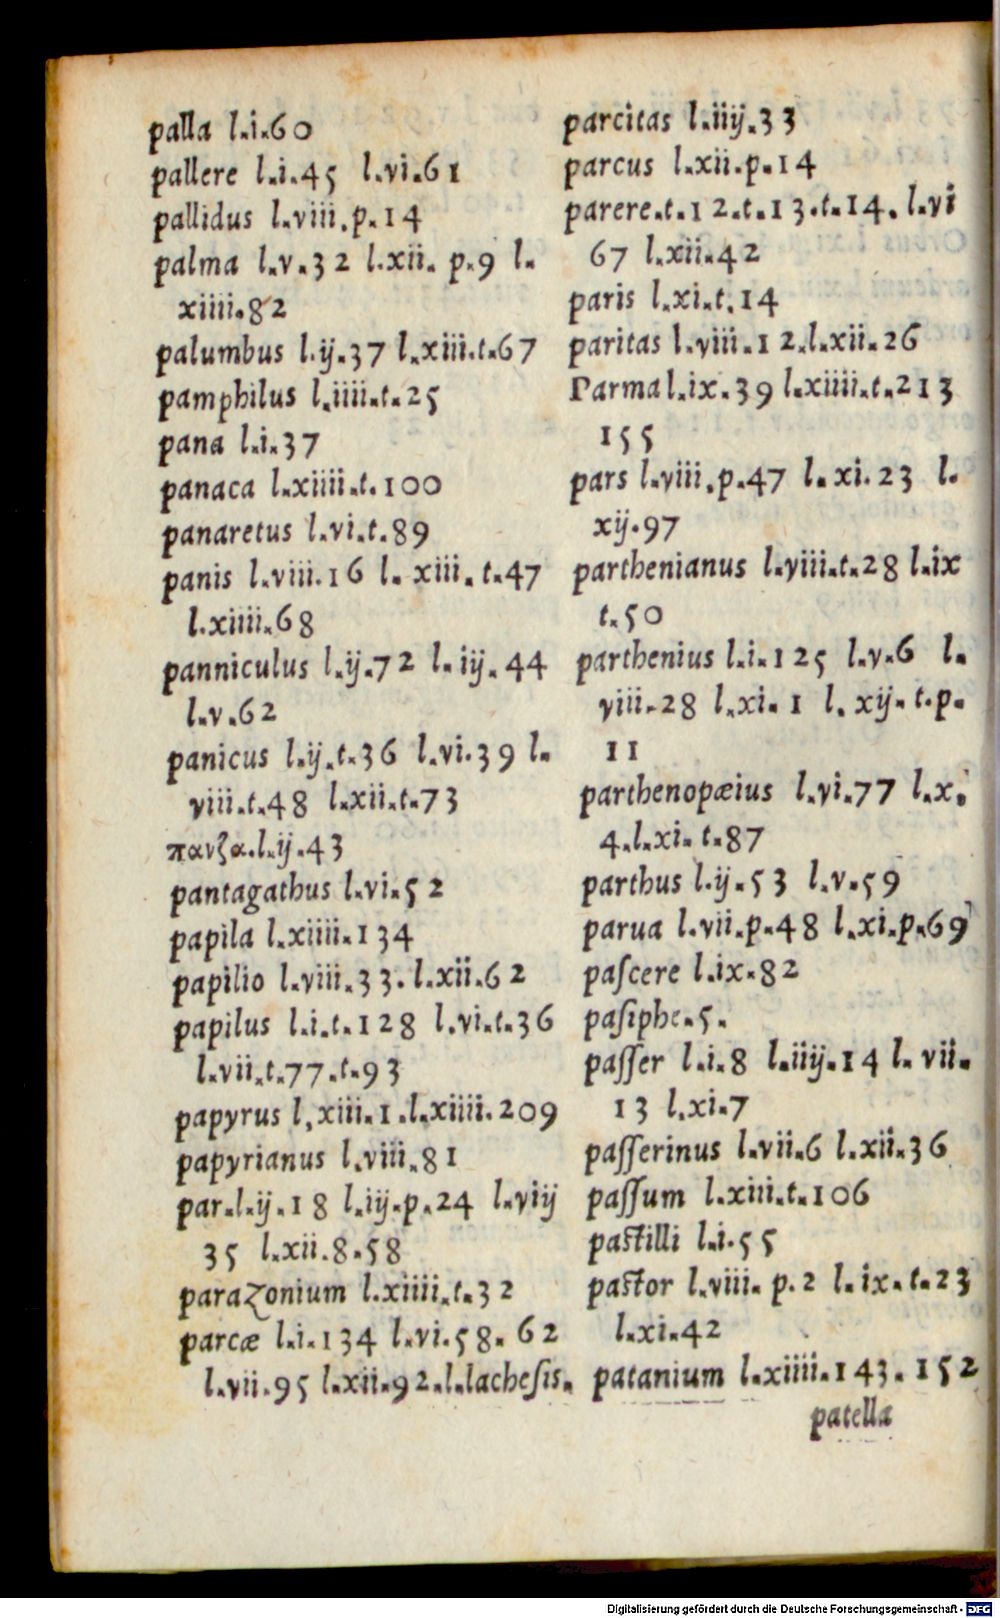 palla l.i.60
pallere l.i.45 l.vi.61
pallidus l.viii.p.14
palma l.v.32 l.xii. p.9 l.
xiiii.82
palumbus l.ij.37 l.xiii.t.67
pamphilus l.iiii.t.25
pana l.i.37
panaca l.xiiii.t.100
panaretus l.vi.t.89
panis l.viii.16 l. xiii. t.47
l.xiiii.68
panniculus l.ij.72 l. iij. 44
l.v.62
panicus l.ij.t.36 l.vi.39 l.
viii.t.48 l.xii.t.73
πανζα.l.ij.43
pantagathus l.vi.52
papila l.xiiii.134
papilio l.viii.33. l.xii.62
papilus l.i.t.128 l.vi.t.36
l.vii.t.77.t.93
papyrus l,xiii.1.l.xiiii.209
papyrianus l.viii.81
par.l.ij.18 l.iij.p.24 l.viij
35 l.xii.8.58
paraZonium l.xiiii.t.32
parcæ l.i.134 l.vi.58. 62
l.vii.95 l.xii.92.l.lacheſis.
parcitas l.iiij.33
parcus l.xii.p.14
parere.t.12.t.13.t.14. l.vi
67 l.xii.42
paris l.xi.t.14
paritas l.viii.12.l.xii.26
Parma l.ix.39 l.xiiii.t.213
155
pars l.viii.p.47 l. xi.23 l.
xij.97
parthenianus l.viii.t.28 l.ix
t.50
parthenius l.i.125 l.v.6 l.
viii.28 l.xi. 1 l. xij. t.p.
11
parthenopæius l.vi.77 l.x.
4.l.xi. t.87
parthus l.ij.53 l.v.59
parua l.vii.p.48 l.xi.p.69
paſcere l.ix.82
paſiphe.5.
paſſer l.i.8 l.iiij.14 l. vii.
13 l.xi.7
paſſerinus l.vii.6 l.xii.36
paſſum l.xiii.t.106
paſtilli l.i.55
paſtor l.viii. p.2 l.ix.t.23
l.xi.42
patanium l.xiiii.143. 152
patella
Digitalisierung gefördert durch die Deutsche Forschungsgemeinschaft - DFG